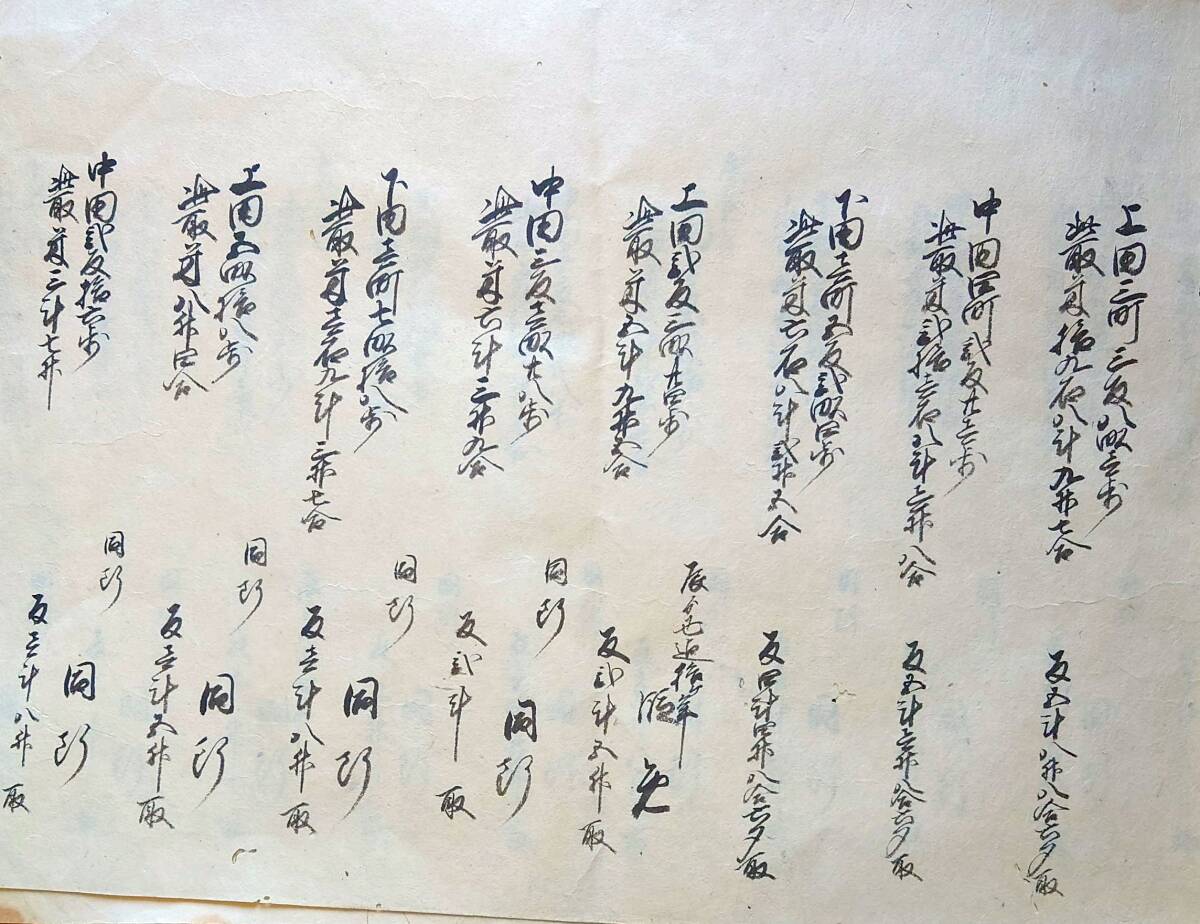 上田三町三反八畝壱歩
此取米拾九石八斗九升七合
反五斗八升八合六夕取
中田四町弐反廿壱歩
此取米弐拾壱石八斗壱升八合
反五斗壱升八合六夕取
下田壱町五反弐畝四歩
此取米六石八斗弐升五合
反四斗四升八合六夕取
辰
迄拾
免
上田弐反三畝廿四歩
此取米五斗九升五合
反弐斗五升取
同断
同断
中田三反壱畝廿八歩
此取米六斗三升九合
反弐斗取
同断
同断
下田壱町七畝拾八歩
此取米壱石九斗三升七合
反壱斗八升取
同断
同断
上田五畝拾八歩
此取米八升四合
反壱斗五升取
同断
同断
中田弐反拾六歩
此取米三斗七升
反壱斗八升取